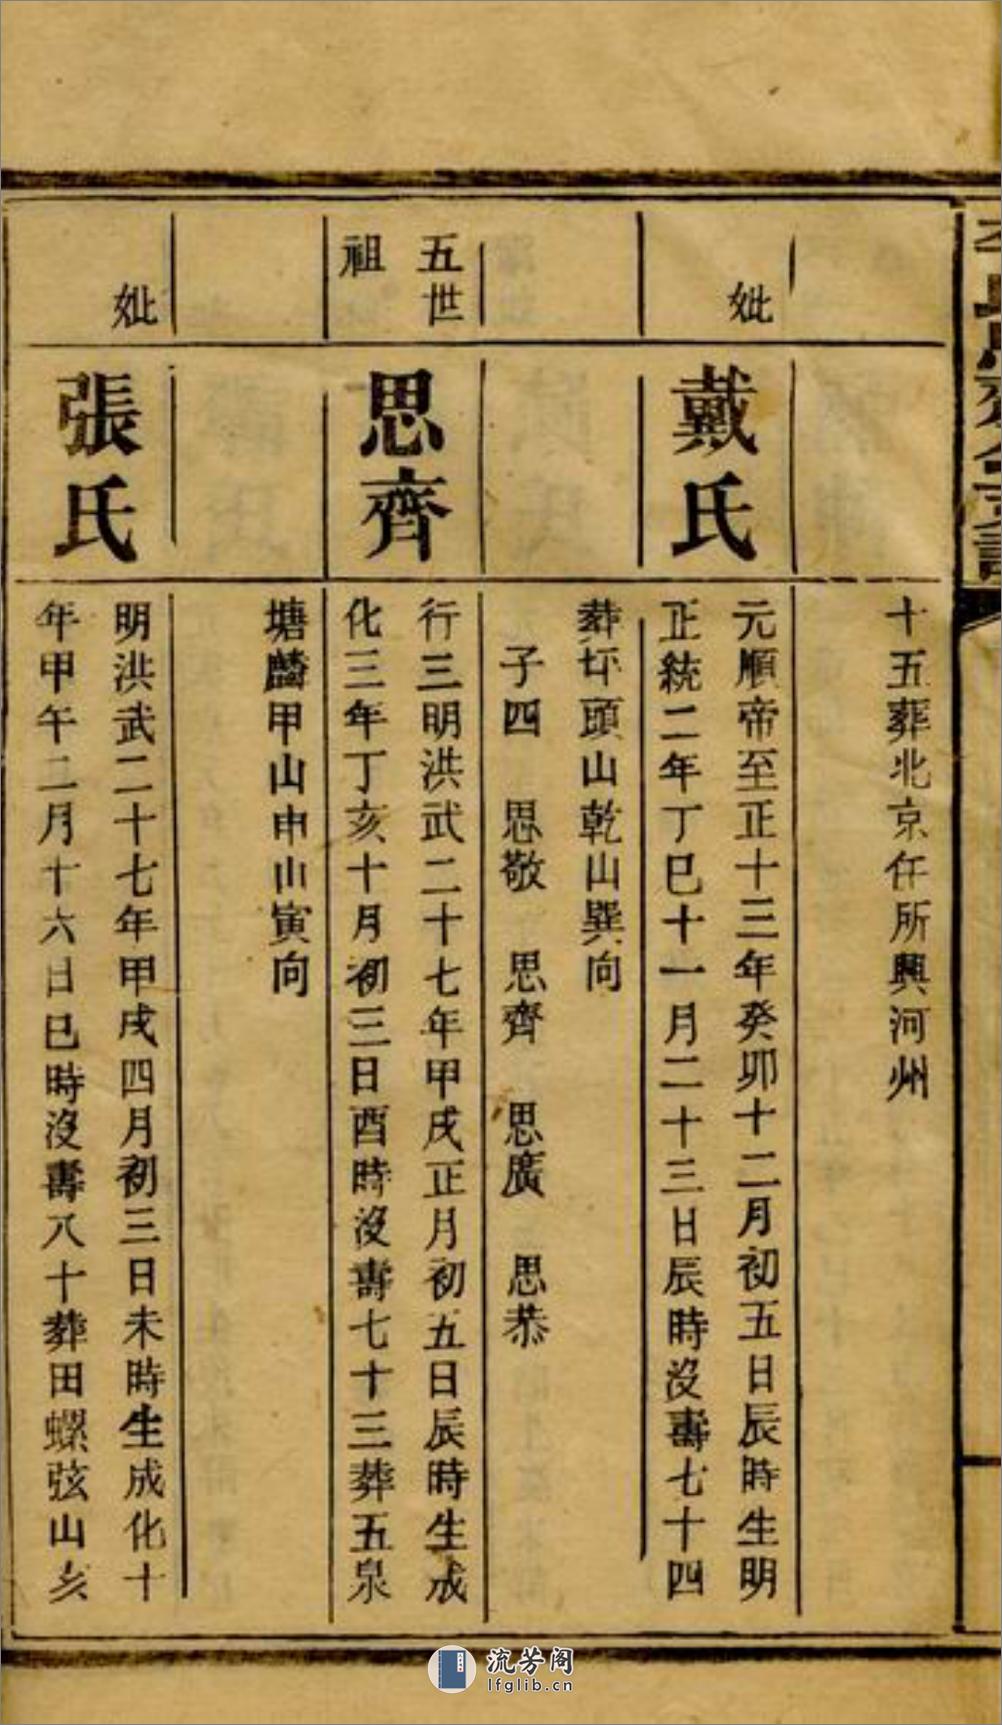 十五葬北京任所興河州
妣
戴氏
元順帝至正十三年癸卯十二月初五日辰時生明
正統二年丁巳十一月二十三日辰時沒壽七十四
葬坏頭山乾山巽向
子四 思敬 思齊 思廣 思恭
五世
祖
思齊
行三明洪武二十七年甲戌正月初五日辰時生成
化三年丁亥十月初三日酉時沒壽七十三葬五泉
塘麟甲山申山寅向
妣
張氏
明洪武二十七年甲戌四月初三日未時生成化十
年甲午二月十六日巳時沒壽八十葬田螺弦山亥
流芳阁
lfglib.cn